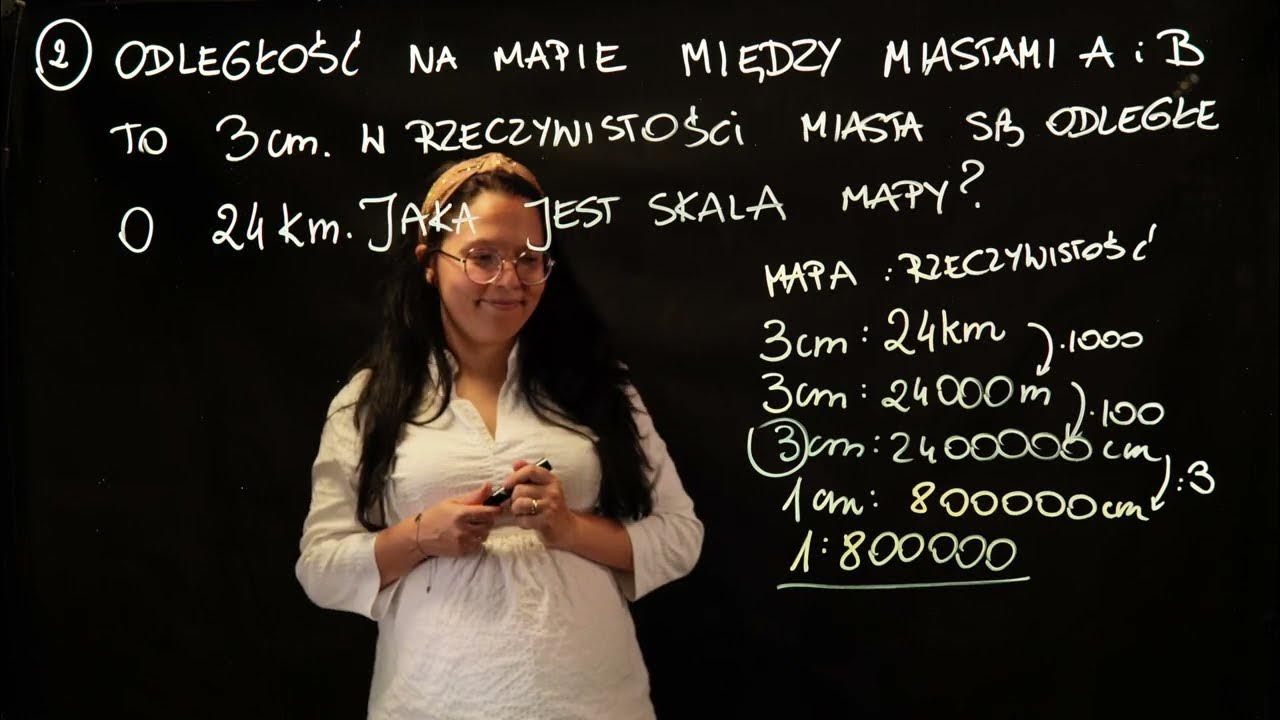 2 ODLEGŁOŚĆ NA MAPIE MIĘDZY MIASTAMI A i B
TO 3cm. W RZECZYWISTOŚCi MIASTA SĄ ODLEGŁE
O 24km. JAKA JEST SKALA MAPY?
MAPA : RZECZYWISTOŚĆ
3cm : 24km ·1000
3cm : 24000m ·100
3cm : 2400000 cm :3
1cm : 800000cm
1:800000